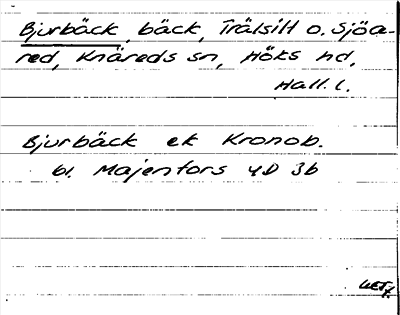 Bjurbäck, bäck, Trälsilt o. Sjöa-
red, Knäreds sn, Höks hd,
Hall. l.
Bjurbäck ek Kronob.
bl. Majenfors 4D 3b